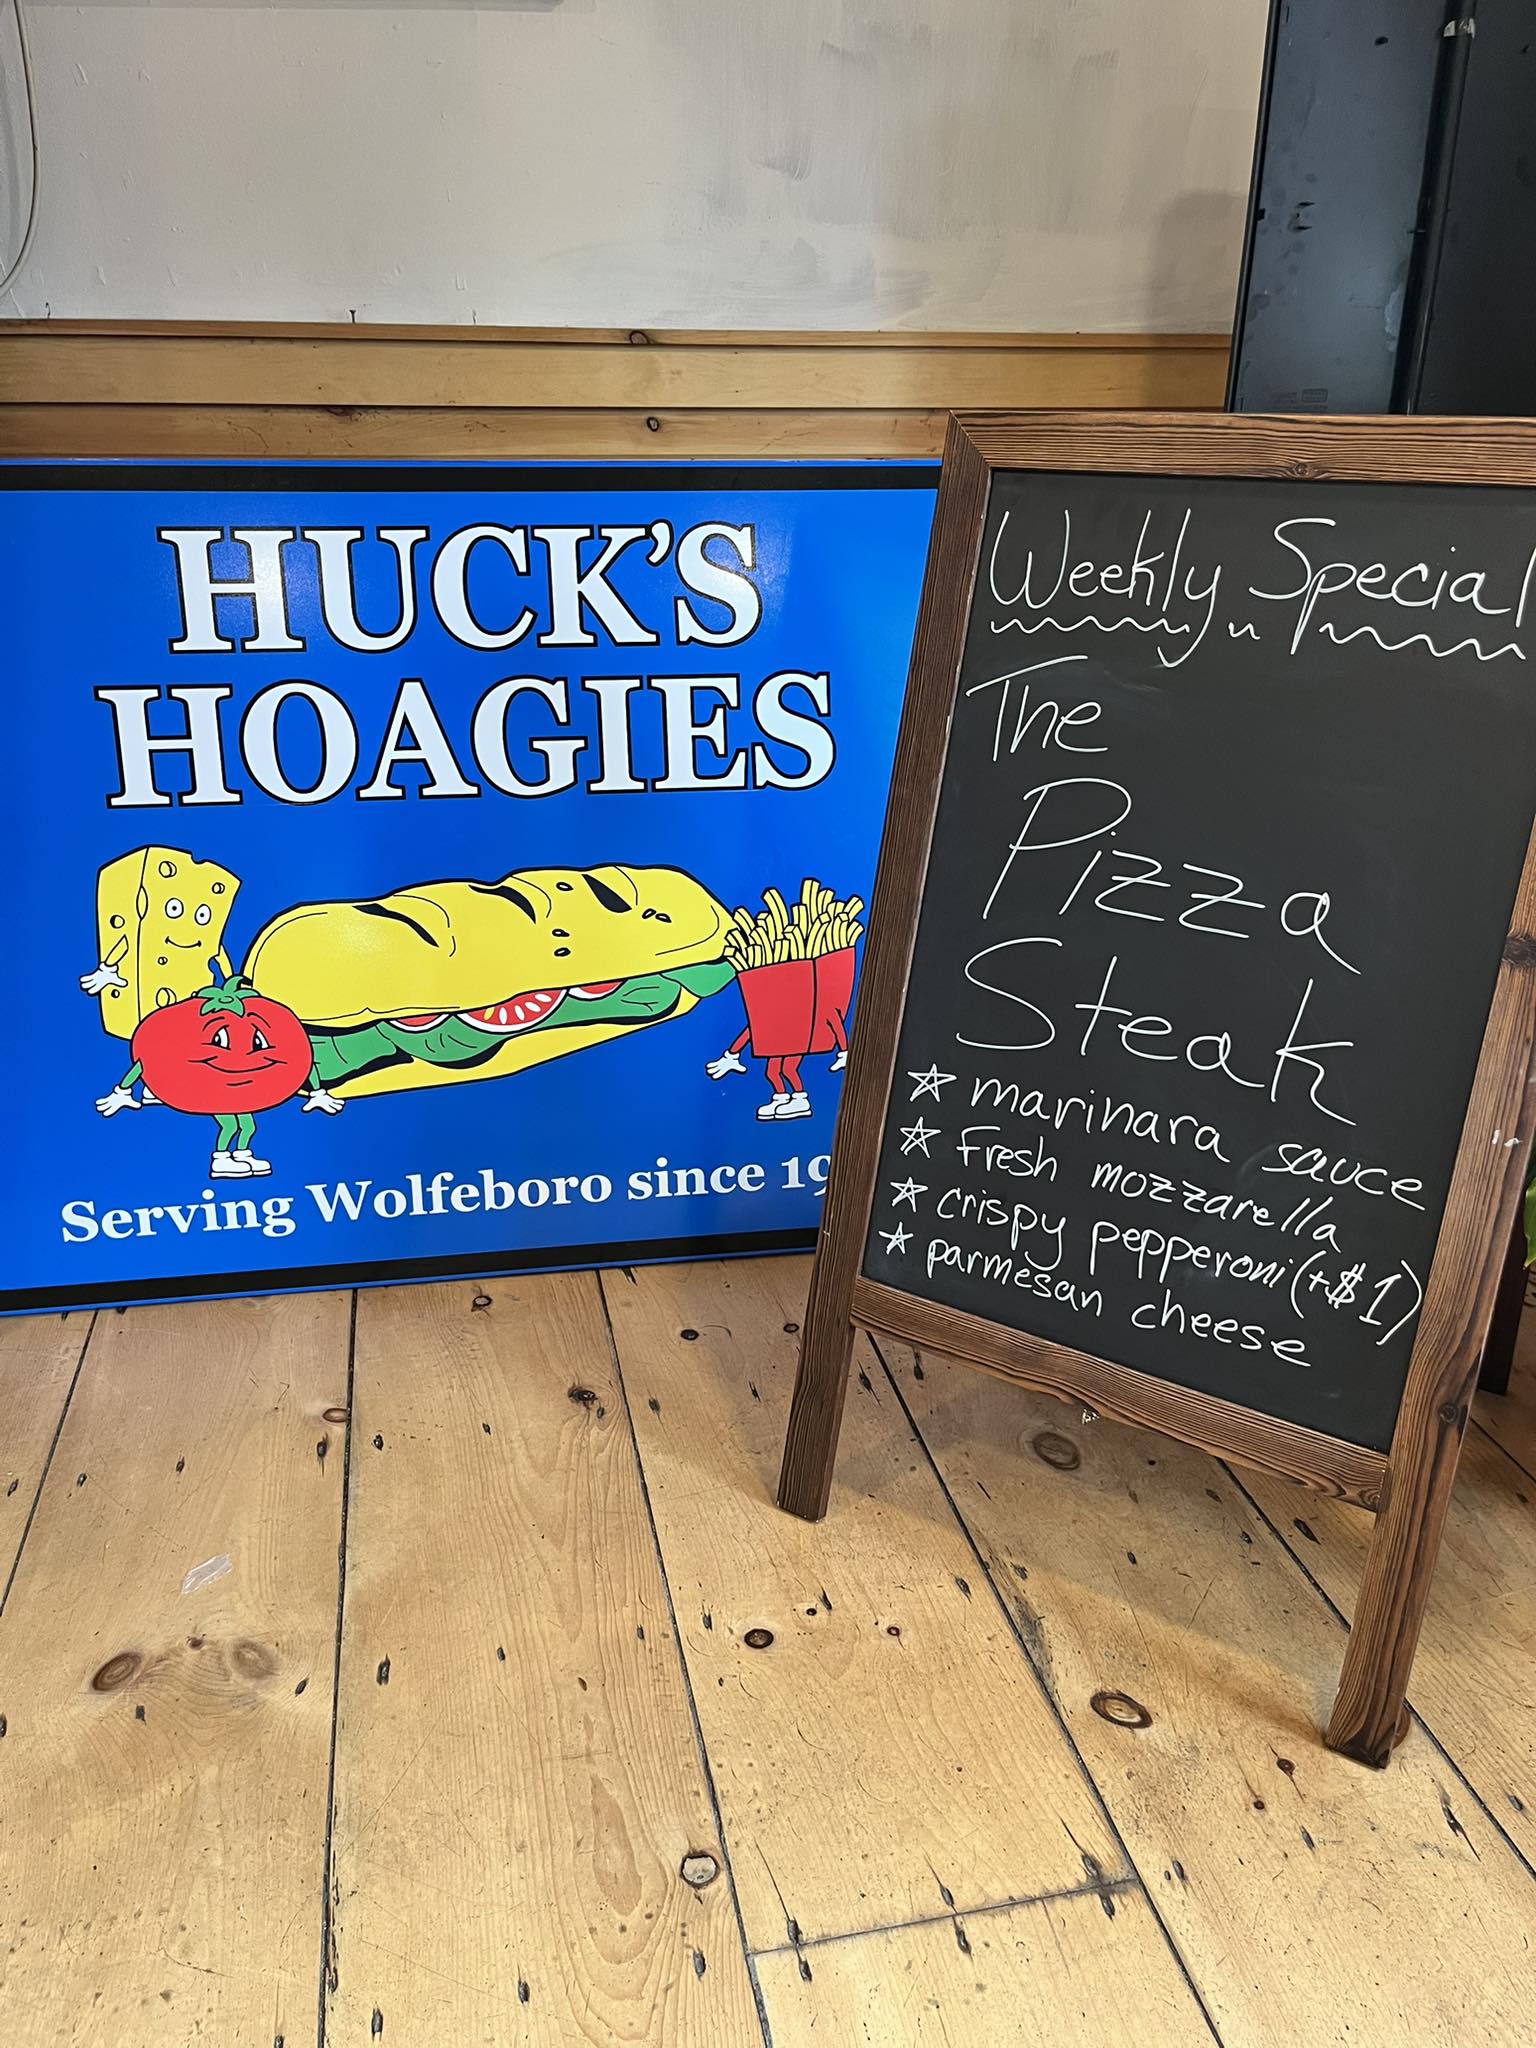 HUCK'S
HOAGIES
Serving Wolfeboro since 19
Weekly Special
The
Pizza
Steak
☆ marinara sauce
☆ Fresh mozzarella
☆ crispy pepperoni (+$1)
☆ parmesan cheese